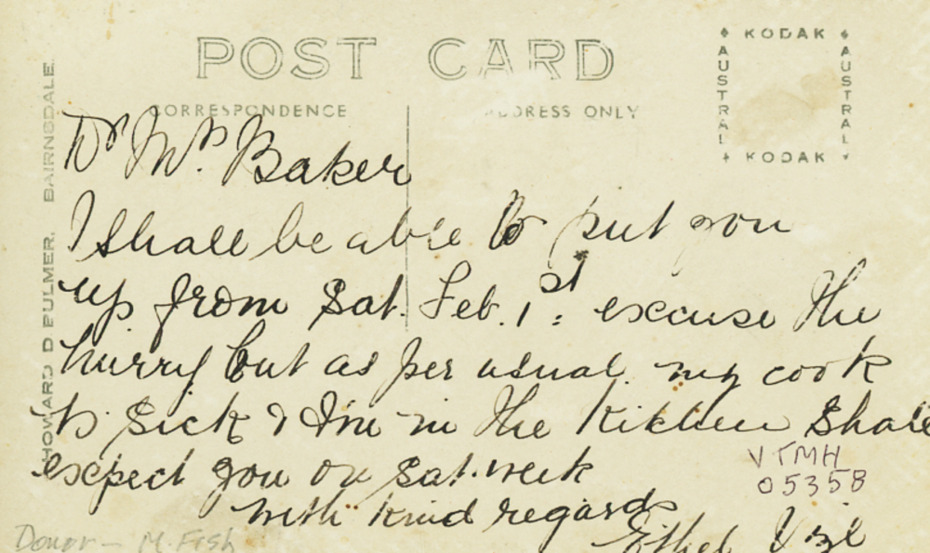 POST CARD
KODAK
AUSTRAL
AUSTRAL
KODAK
CORRESPONDENCE
ADDRESS ONLY
HOWARD D BULMER. BAIRNSDALE.
Dr Mrs. Baker
I shall be able to put you
up from Sat. Feb. 1st: excuse the
hurry but as per usual my cook
is sick & I'm in the kitchen Shall
expect you on Sat. week
with kind regards
Ethel
VTMH
05358
Donor - M. Fish